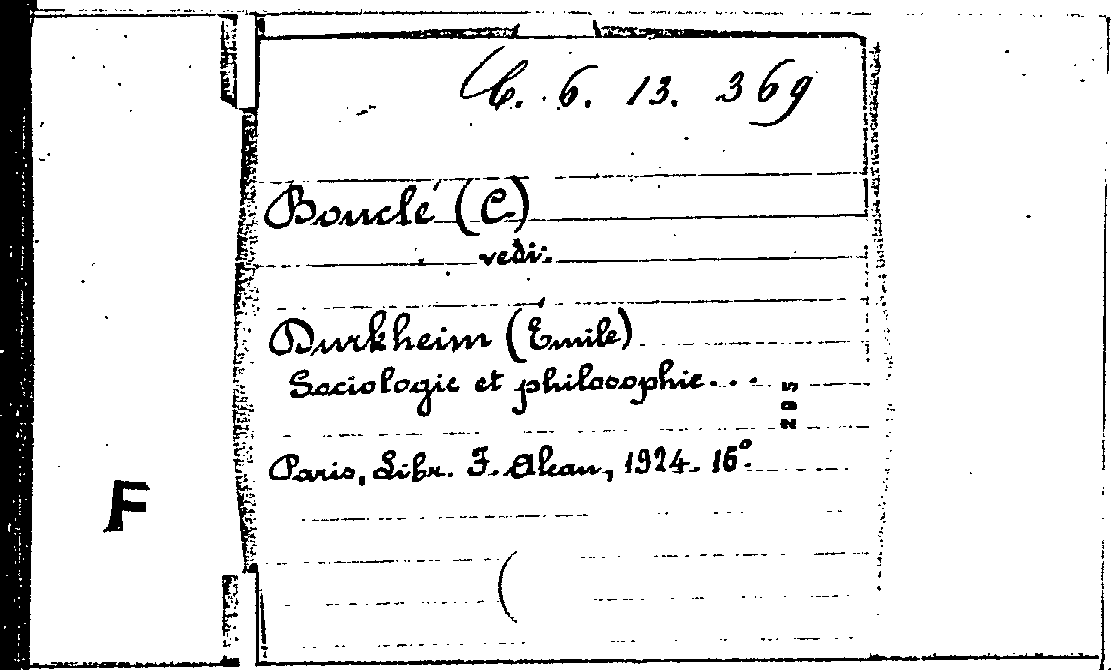 C. 6. 13. 369
Bouclé (C.)
vedi:
Durkheim (Émile)
Sociologie et philosophie...
205
Paris, Libr. F. Alcan, 1924. 16°.
F